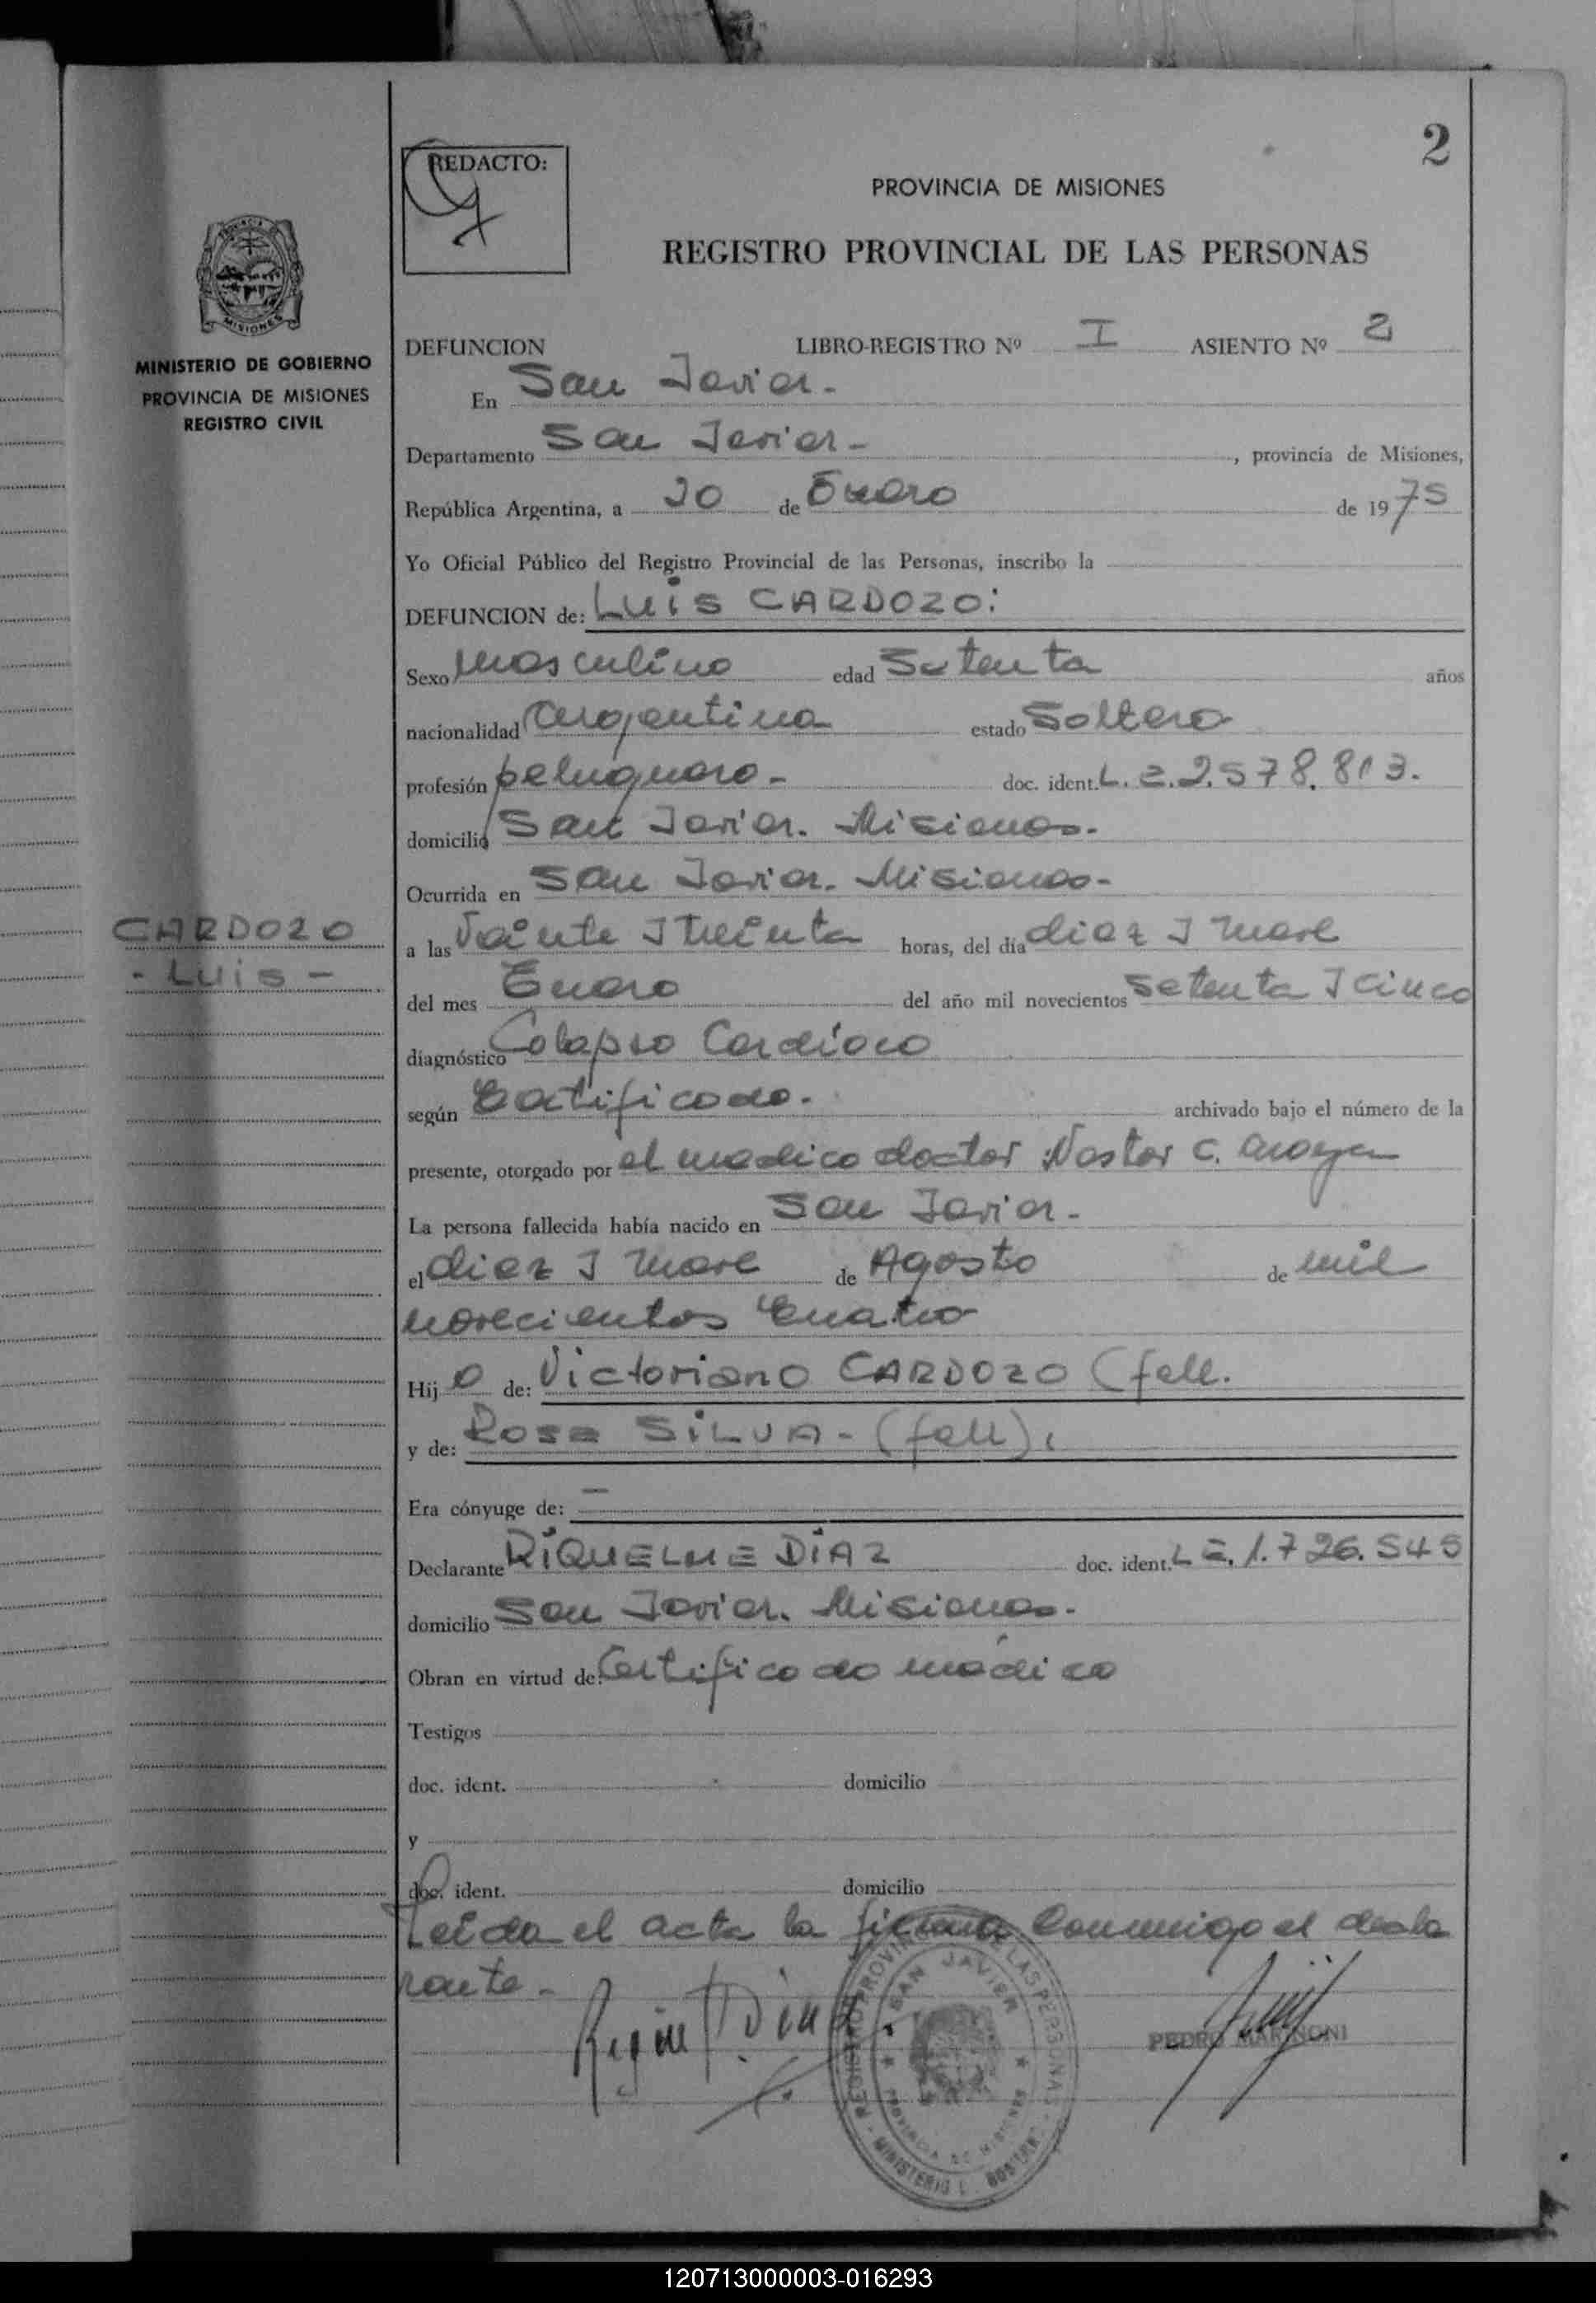 2
REDACTO:
PROVINCIA DE MISIONES
REGISTRO PROVINCIAL DE LAS PERSONAS
MINISTERIO DE GOBIERNO
PROVINCIA DE MISIONES
REGISTRO CIVIL
DEFUNCION LIBRO-REGISTRO Nº I ASIENTO Nº 2
En San Javier.-
Departamento San Javier-, provincia de Misiones,
República Argentina, a 20 de Enero de 1975
Yo Oficial Público del Registro Provincial de las Personas, inscribo la
DEFUNCION de: LUIS CARDOZO:
Sexo masculino edad Setenta años
nacionalidad argentina estado Soltero
profesión peluquero- doc. ident. L. E. 2.578.813.
domicilio San Javier. Misiones-
Ocurrida en San Javier. Misiones-
CARDOZO
- LUIS -
a las Veinte y treinta horas, del día diez y nueve
del mes Enero del año mil novecientos setenta y cinco
diagnóstico Colapso Cardíaco
según Certificado. archivado bajo el número de la
presente, otorgado por el medico doctor Nestor C.
La persona fallecida había nacido en San Javier-
el diez y nueve de Agosto de mil
novecientos Cuatro
Hijo de: Victoriano CARDOZO (fell.
y de: Rosa SILVA- (fell).
Era cónyuge de: —
Declarante RIQUELME DIAZ doc. ident. L E. 1.726.545
domicilio San Javier. Misiones-
Obran en virtud de: Certificado médico
Testigos
doc. ident. domicilio
y
doc. ident. domicilio
Leida el acta la firma Conmigo el decla
rante-
PEDRO MARINONI
REGISTRO PROVINCIAL DE LAS PERSONAS
SAN JAVIER
PROVINCIA DE MISIONES
120713000003-016293